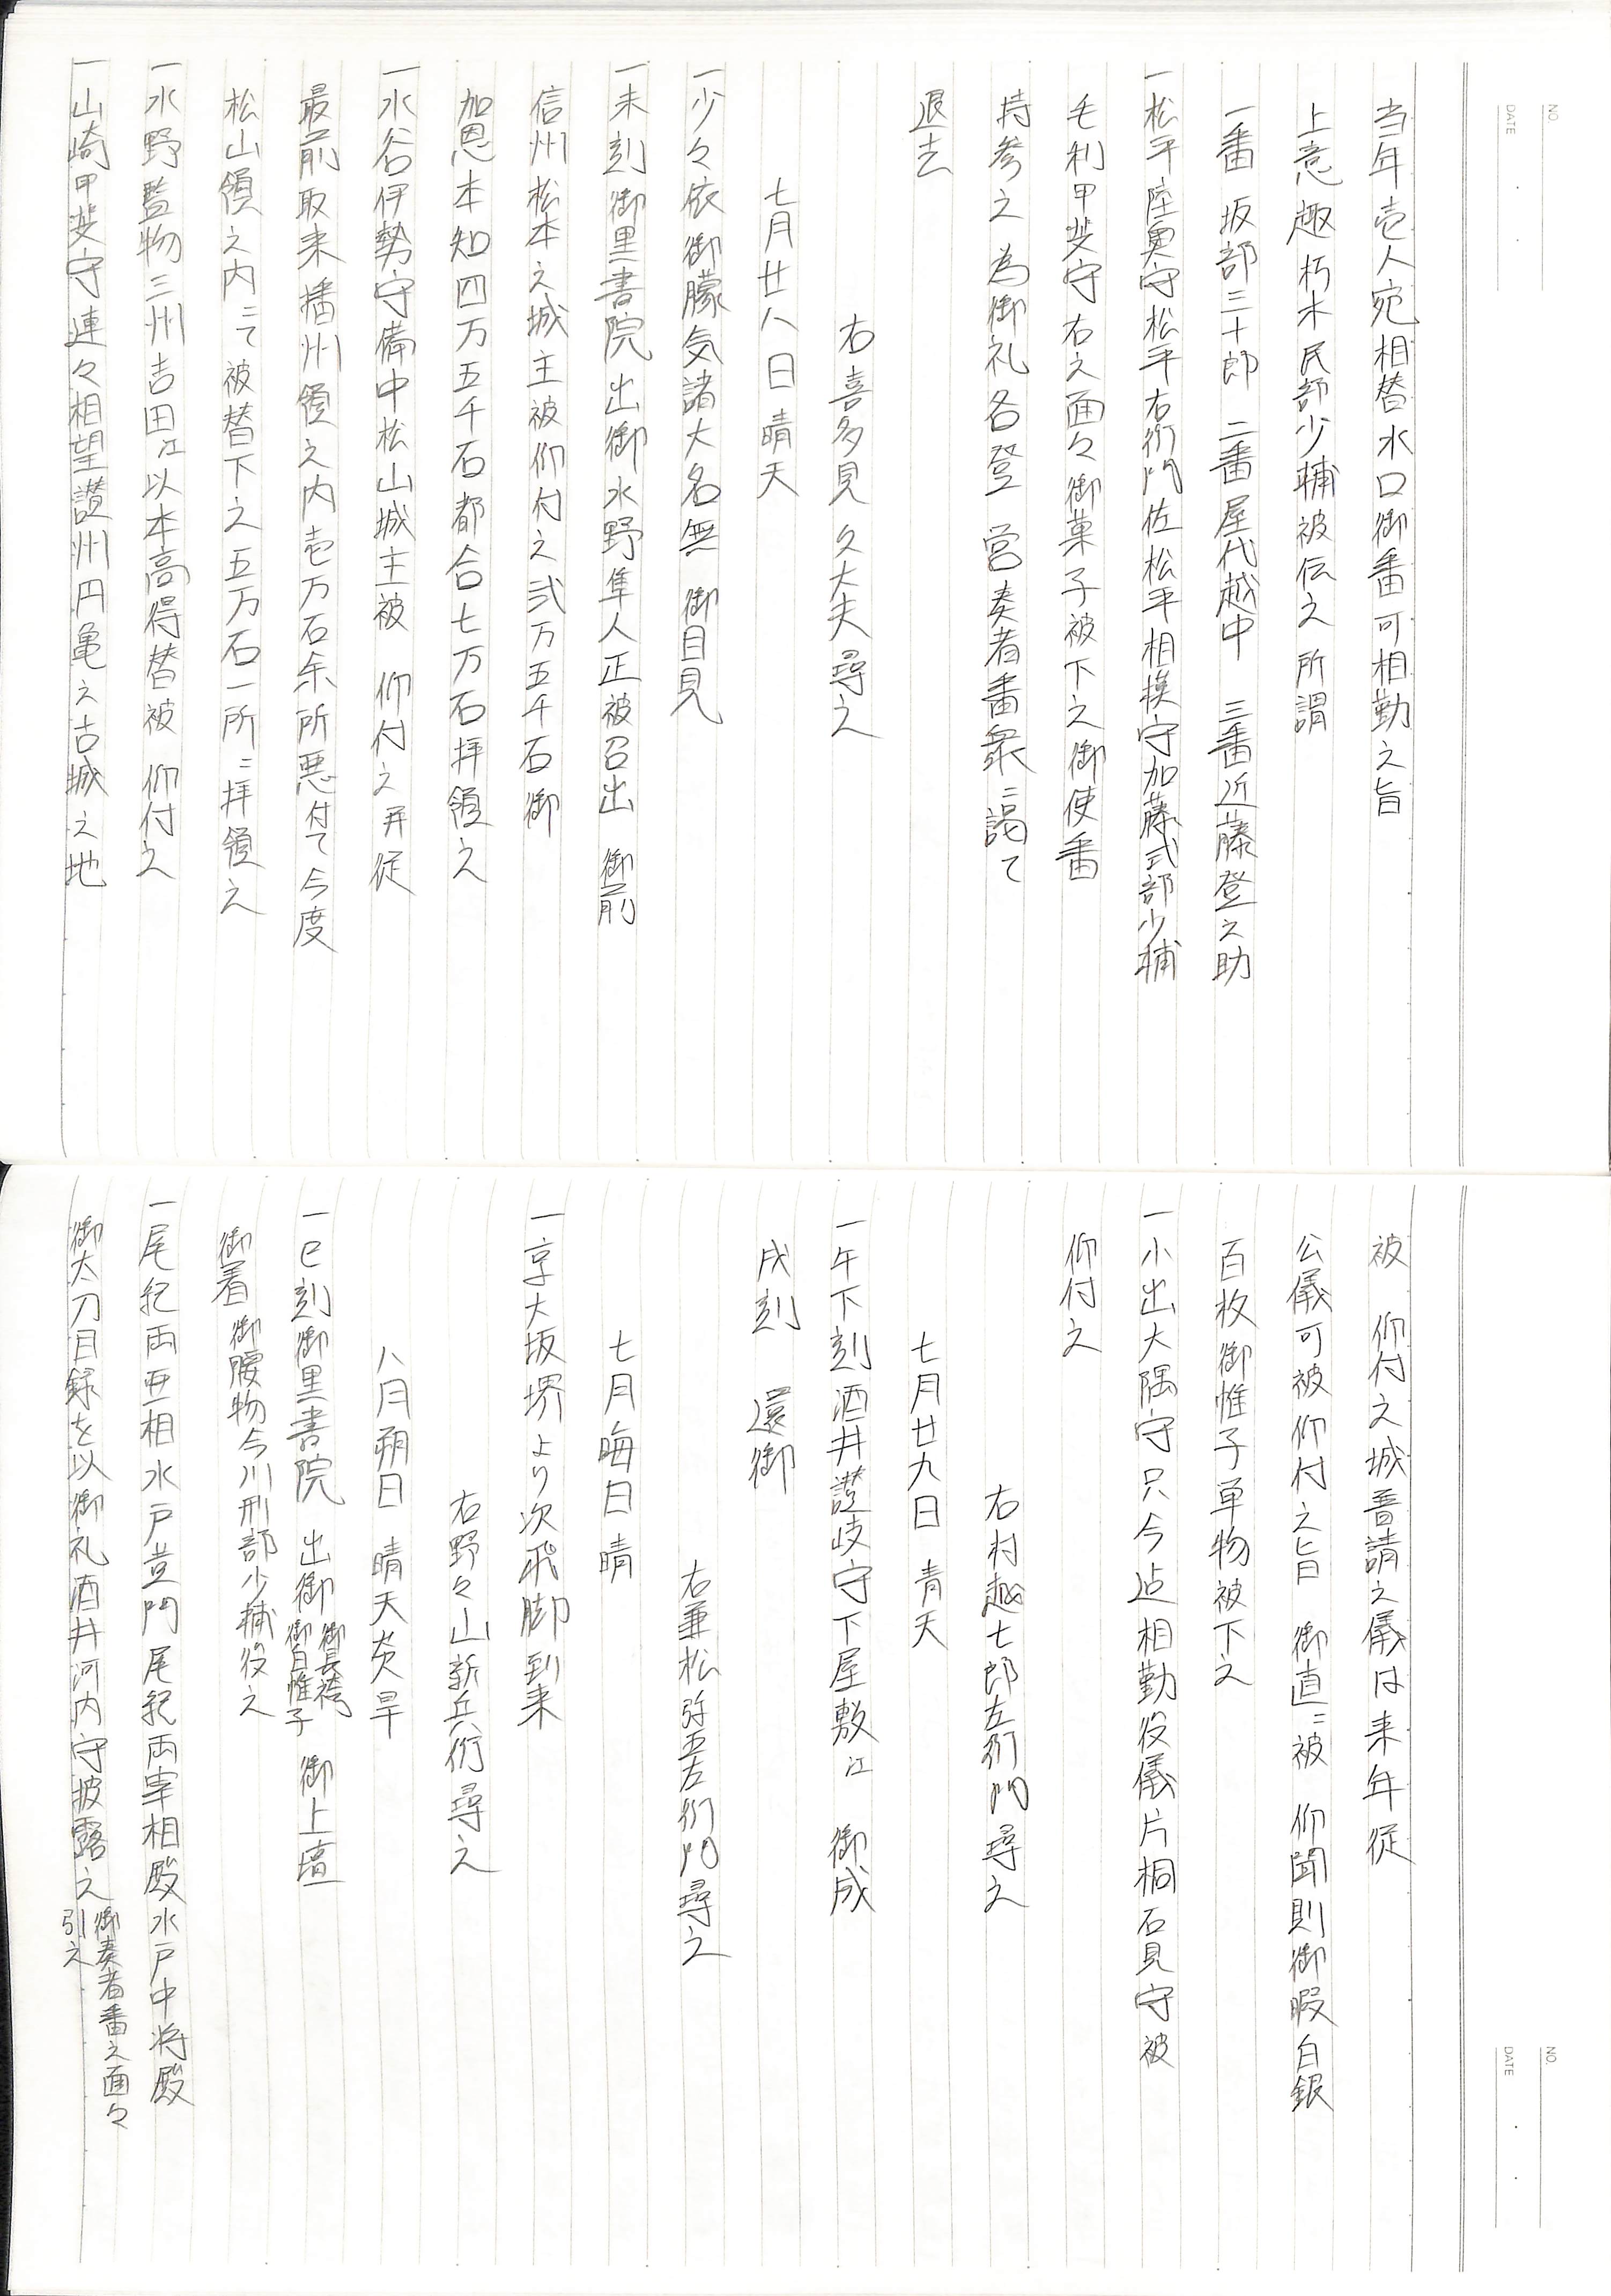 当年壱人宛相替水口御番可相勤之旨
上意趣朽木民部少輔被伝之所謂
一番 坂部三十郎 二番屋代越中 三番近藤登之助
一松平陸奥守松平右衛門佐松平相模守加藤式部少輔
毛利甲斐守右之面々御菓子被下之御使番
持参之為御礼各登 営奏者番衆ニ謁て
退去
右喜多見久大夫尋之
七月廿八日晴天
一少々依御朦気諸大名無 御目見
一未刻御黒書院出御水野隼人正被召出 御前
信州松本之城主被仰付之弐万五千石御
加恩本知四万五千石都合七万石拝領之
一水谷伊勢守備中松山城主被 仰付之并従
最前取来播州領之内壱万石余所悪付て今度
松山領之内ニて被替下之五万石一所ニ拝領之
一水野監物三州吉田江以本高得替被 仰付之
一山崎甲斐守連々相望讃州円亀之古城之地
被 仰付之城普請之儀は来年従
公儀可被仰付之旨 御直ニ被 仰聞則御暇白銀
百枚御帷子単物被下之
一小出大隅守只今迠相勤役儀片桐石見守被
仰付之
右村越七郎左衛門尋之
七月廿九日 青天
一午下刻酒井讃岐守下屋敷江 御成
戌刻 還御
右兼松弥五左衛門尋之
七月晦日 晴
一京大坂堺より次飛脚到来
右野々山新兵衛尋之
八月朔日 晴天炎旱
一巳刻御黒書院 出御御長袴御白帷子 御上壇
御着御腰物今川刑部少輔役之
一尾紀両亜相水戸並門尾紀両宰相殿水戸中将殿
御太刀目録を以御礼酒井河内守披露之御奏者番之面々引之
NO.
DATE
NO.
DATE